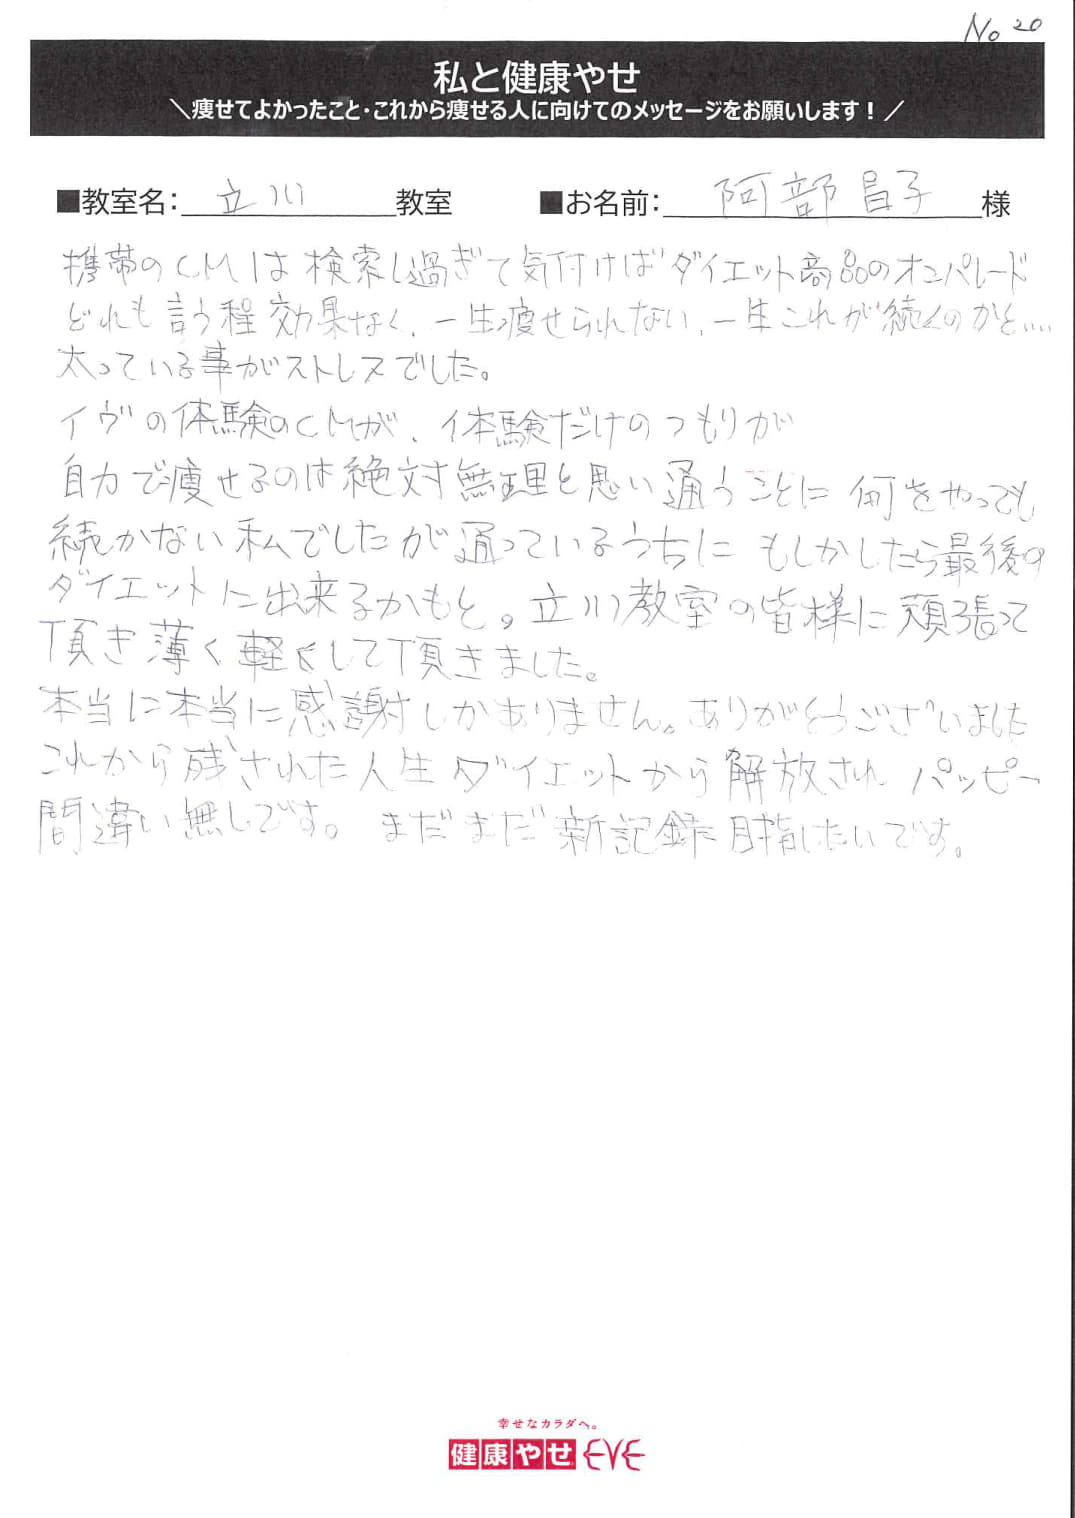 No 20
私と健康やせ
＼痩せてよかったこと・これから痩せる人に向けてのメッセージをお願いします！／
■教室名：立川教室 ■お名前：阿部昌子様
携帯のCMは検索し過ぎて気付けばダイエット商品のオンパレード
どれも言う程効果なく、一生痩せられない、一生これが続くのかと……
太っている事がストレスでした。
イヴの体験のCMが、体験だけのつもりが
自力で痩せるのは絶対無理と思い通うことに 何をやっても
続かない私でしたが通っているうちに もしかしたら最後の
ダイエットに出来るかもと。立川教室の皆様に頑張って
頂き薄く軽くして頂きました。
本当に本当に感謝しかありません。ありがとうございました
これから残された人生ダイエットから解放され パッピー
間違い無しです。まだまだ新記録目指したいです。
幸せなカラダへ。
健康やせEVE